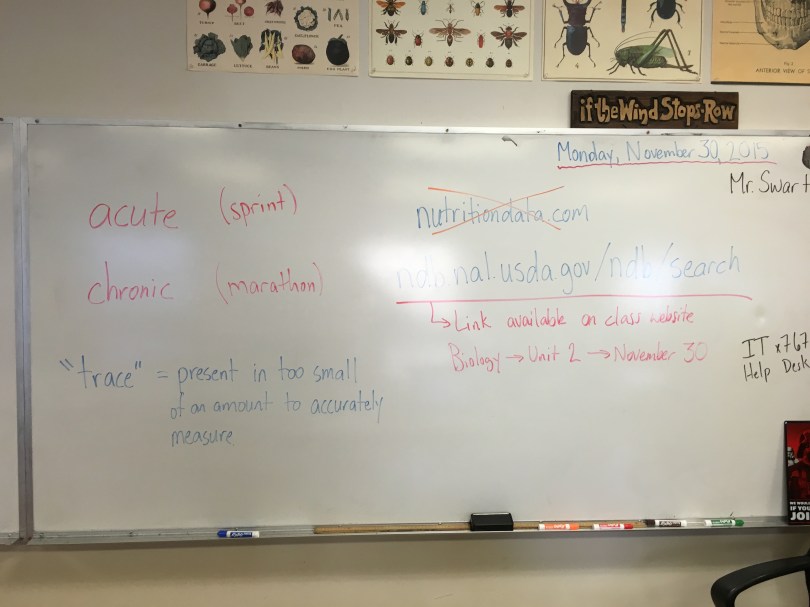 if the Wind Stops Row
ANTERIOR VIEW OF
Monday, November 30, 2015
Mr. Swart
acute (sprint)
nutritiondata.com
chronic (marathon)
ndb.nal.usda.gov/ndb/search
Link available on class website
Biology → Unit 2 → November 30
IT x767
Help Desk
"trace" = present in too small
of an amount to accurately
measure
IF YOU
JOI